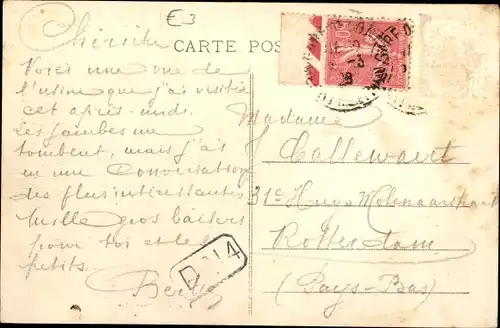 €3
CARTE POS
Chérite
Voici une vue de
l'usine que j'ai visitée
cet après-midi.
Les jambes me
tombent, mais j'ai
eu une conversation
des plus intéressantes
Mille gros baisers
pour toi et les
petits.
D 14
Madame
Callewaert
31c Hugo Molenaarstraat
Rotterdam
(Pays-Bas)